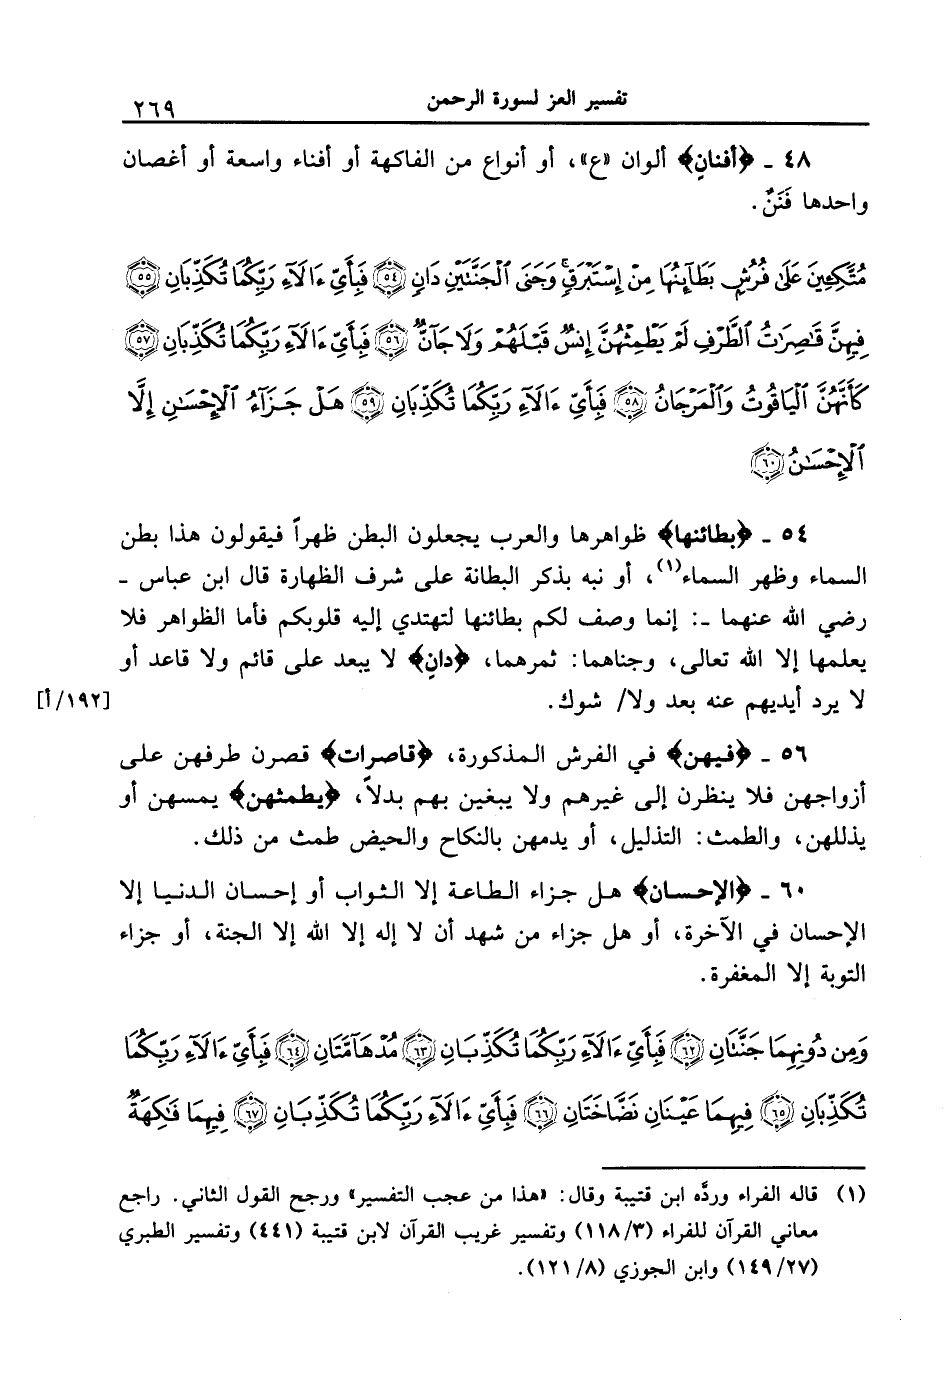 تفسير العز لسورة الرحمن ٢٦٩
٤٨ ـ ﴿أفنانٍ﴾ ألوان «ع»، أو أنواع من الفاكهة أو أفناء واسعة أو أغصان
واحدها فَنَنٌ.
مُتَّكِئِينَ عَلَىٰ فُرُشٍۭ بَطَآئِنُهَا مِنْ إِسْتَبْرَقٍۚ وَجَنَى ٱلْجَنَّتَيْنِ دَانٍ ﴿٥٤﴾ فَبِأَيِّ ءَالَآءِ رَبِّكُمَا تُكَذِّبَانِ ﴿٥٥﴾
فِيهِنَّ قَٰصِرَٰتُ ٱلطَّرْفِ لَمْ يَطْمِثْهُنَّ إِنسٌ قَبْلَهُمْ وَلَا جَآنٌّ ﴿٥٦﴾ فَبِأَيِّ ءَالَآءِ رَبِّكُمَا تُكَذِّبَانِ ﴿٥٧﴾
كَأَنَّهُنَّ ٱلْيَاقُوتُ وَٱلْمَرْجَانُ ﴿٥٨﴾ فَبِأَيِّ ءَالَآءِ رَبِّكُمَا تُكَذِّبَانِ ﴿٥٩﴾ هَلْ جَزَآءُ ٱلْإِحْسَٰنِ إِلَّا
ٱلْإِحْسَٰنُ ﴿٦٠﴾
٥٤ ـ ﴿بطائنها﴾ ظواهرها والعرب يجعلون البطن ظهراً فيقولون هذا بطن
السماء وظهر السماء(١)، أو نبه بذكر البطانة على شرف الظهارة قال ابن عباس ـ
رضي الله عنهما ـ: إنما وصف لكم بطائنها لتهتدي إليه قلوبكم فأما الظواهر فلا
يعلمها إلا الله تعالى، وجناهما: ثمرهما، ﴿دانٍ﴾ لا يبعد على قائم ولا قاعد أو
لا يرد أيديهم عنه بعد ولا/ شوك. [١٩٢/أ]
٥٦ ـ ﴿فيهن﴾ في الفرش المذكورة، ﴿قاصرات﴾ قصرن طرفهن على
أزواجهن فلا ينظرن إلى غيرهم ولا يبغين بهم بدلاً، ﴿يطمثهن﴾ يمسهن أو
يذللهن، والطمث: التذليل، أو يدمهن بالنكاح والحيض طمث من ذلك.
٦٠ ـ ﴿الإحسان﴾ هل جزاء الطاعة إلا الثواب أو إحسان الدنيا إلا
الإحسان في الآخرة، أو هل جزاء من شهد أن لا إله إلا الله إلا الجنة، أو جزاء
التوبة إلا المغفرة.
وَمِن دُونِهِمَا جَنَّتَانِ ﴿٦٢﴾ فَبِأَيِّ ءَالَآءِ رَبِّكُمَا تُكَذِّبَانِ ﴿٦٣﴾ مُدْهَآمَّتَانِ ﴿٦٤﴾ فَبِأَيِّ ءَالَآءِ رَبِّكُمَا
تُكَذِّبَانِ ﴿٦٥﴾ فِيهِمَا عَيْنَانِ نَضَّاخَتَانِ ﴿٦٦﴾ فَبِأَيِّ ءَالَآءِ رَبِّكُمَا تُكَذِّبَانِ ﴿٦٧﴾ فِيهِمَا فَٰكِهَةٌ
(١) قاله الفراء وردَّه ابن قتيبة وقال: «هذا من عجب التفسير» ورجح القول الثاني. راجع
معاني القرآن للفراء (١١٨/٣) وتفسير غريب القرآن لابن قتيبة (٤٤١) وتفسير الطبري
(١٤٩/٢٧) وابن الجوزي (١٢١/٨).